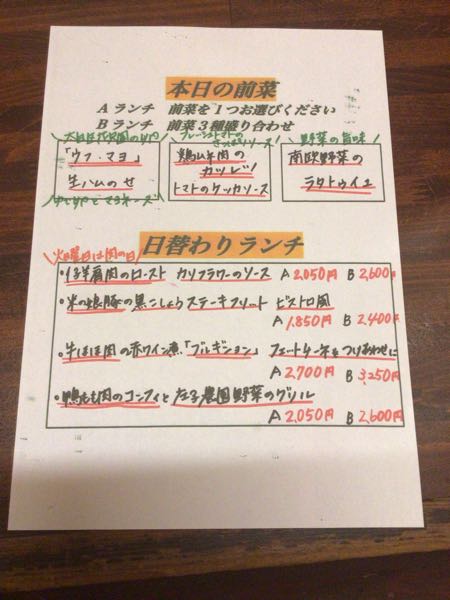 本日の前菜
Aランチ 前菜を1つお選びください
Bランチ 前菜3種盛り合わせ
フレッシュトマトの
さっぱりソース
野菜の旨味
「ウフ・マヨ」
生ハムのせ
ゆで卵とマヨネーズ
鶏ムネ肉の
カツレツ
トマトのケッカソース
南欧野菜の
ラタトゥイユ
日替わりランチ
火曜日は肉の日
・仔羊肩肉のロースト カリフラワーのソース A 2,050円 B 2,600円
・米の娘豚の黒こしょうステーキフリット ビストロ風
A 1,850円 B 2,400円
・牛ほほ肉の赤ワイン煮「ブルギニョン」 フェットチーネをつけあわせに
A 2,700円 B 3,250円
・鴨もも肉のコンフィと庄子農園野菜のグリル
A 2,050円 B 2,600円